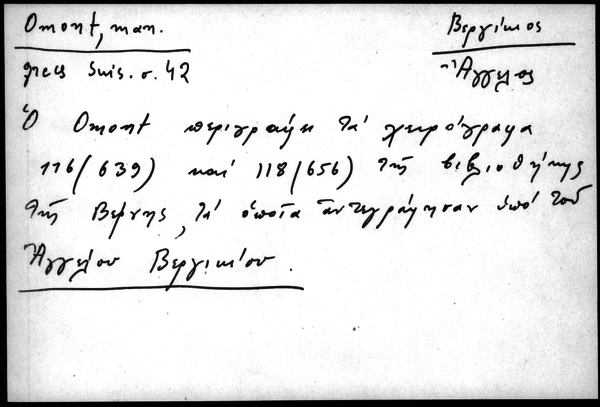 Omont, man.
grecs Suis. σ. 42
Βεργίκιος
Ἄγγελος
Ὁ Omont περιγράφει τά χειρόγραφα
116 (639) καί 118 (656) τῆς βιβλιοθήκης
τῆς Βέρνης, τά ὁποῖα ἀντεγράφησαν ὑπό τοῦ
Ἀγγέλου Βεργικίου.